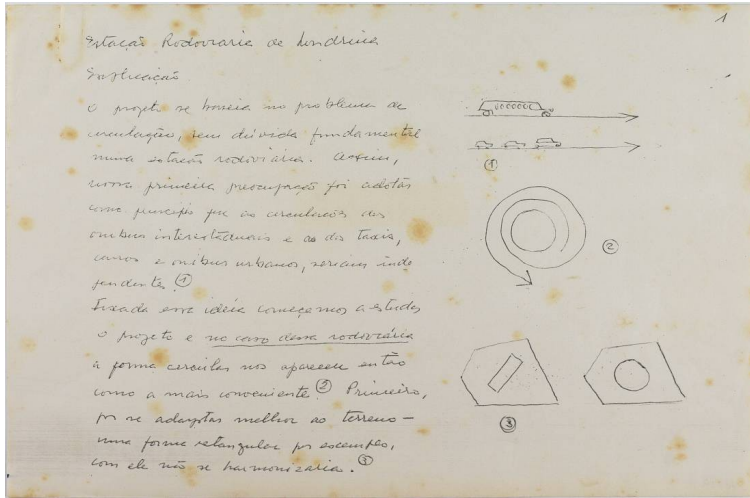 1
Estação Rodoviaria de Londrina
Explicação
O projeto se baseia no problema de
circulação, sem dúvida fundamental
numa estação rodoviária. Assim,
nossa primeira preocupação foi adotar
como princípio que as circulações dos
ônibus interestaduais e as dos taxis,
carros e ônibus urbanos, seriam inde
pendentes. ①
Fixada essa idéia começamos a estudar
o projeto e no caso dessa rodoviária
a forma circular nos aparece então
como a mais conveniente. ② Primeiro,
por se adaptar melhor ao terreno –
uma forma retangular por exemplo,
com ele não se harmonizaria. ③
①
②
③